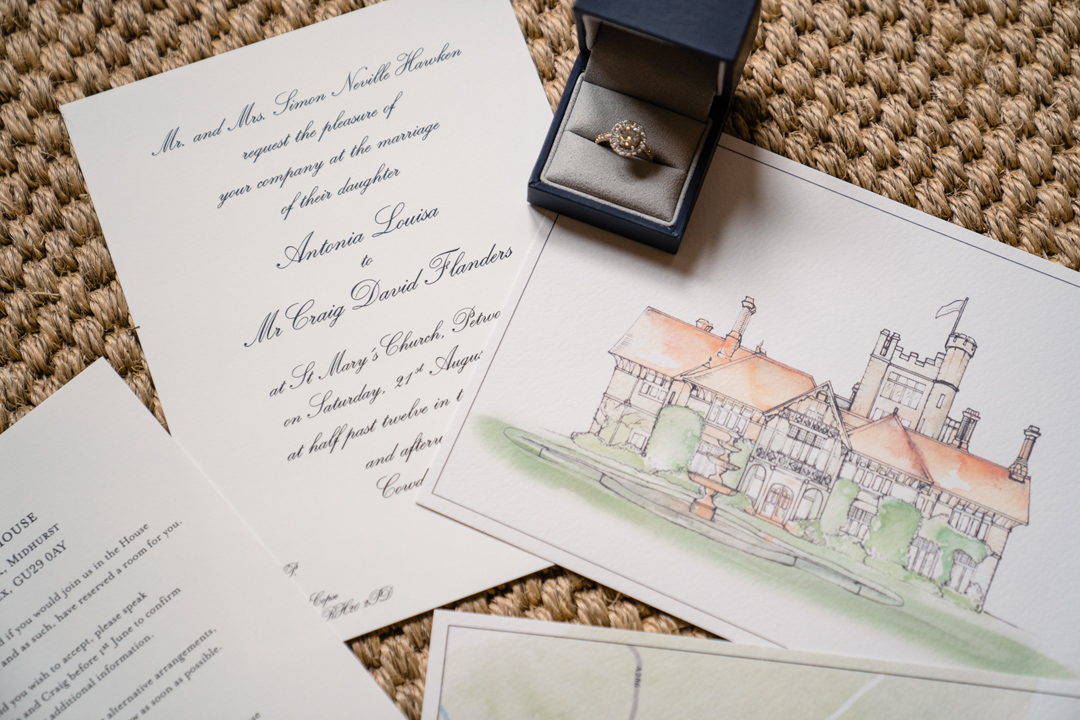 Mr. and Mrs. Simon Neville Hawken
request the pleasure of
your company at the marriage
of their daughter
Antonia Louisa
to
Mr Craig David Flanders
at St Mary's Church, Petwo
on Saturday, 21st Augus
at half past twelve in t
and aftern
Cowd
RH20 2PD
HOUSE
, MIDHURST
X, GU29 0AY
d if you would join us in the House
and as such, have reserved a room for you.
d you wish to accept, please speak
and Craig before 1st June to confirm
additional information.
alternative arrangements,
w as soon as possible.
A286